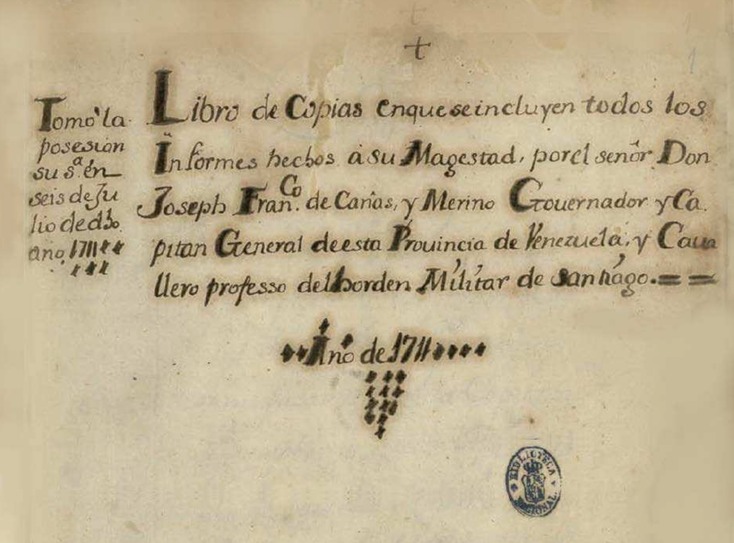 +
Tomó la
posesion
su sª. en
seis de Ju
lio de dho.
año, 1711
Libro de Copias enqueseincluyen todos los
Informes hechos à su Magestad, porel señor Don
Joseph Franco. de Cañas, y Merino Governador y Ca
pitan General deesta Provincia de Venezuela, y Caua
llero professo delhorden Militar de Santiago.==
Año de 1711
BIBLIOTECA NACIONAL